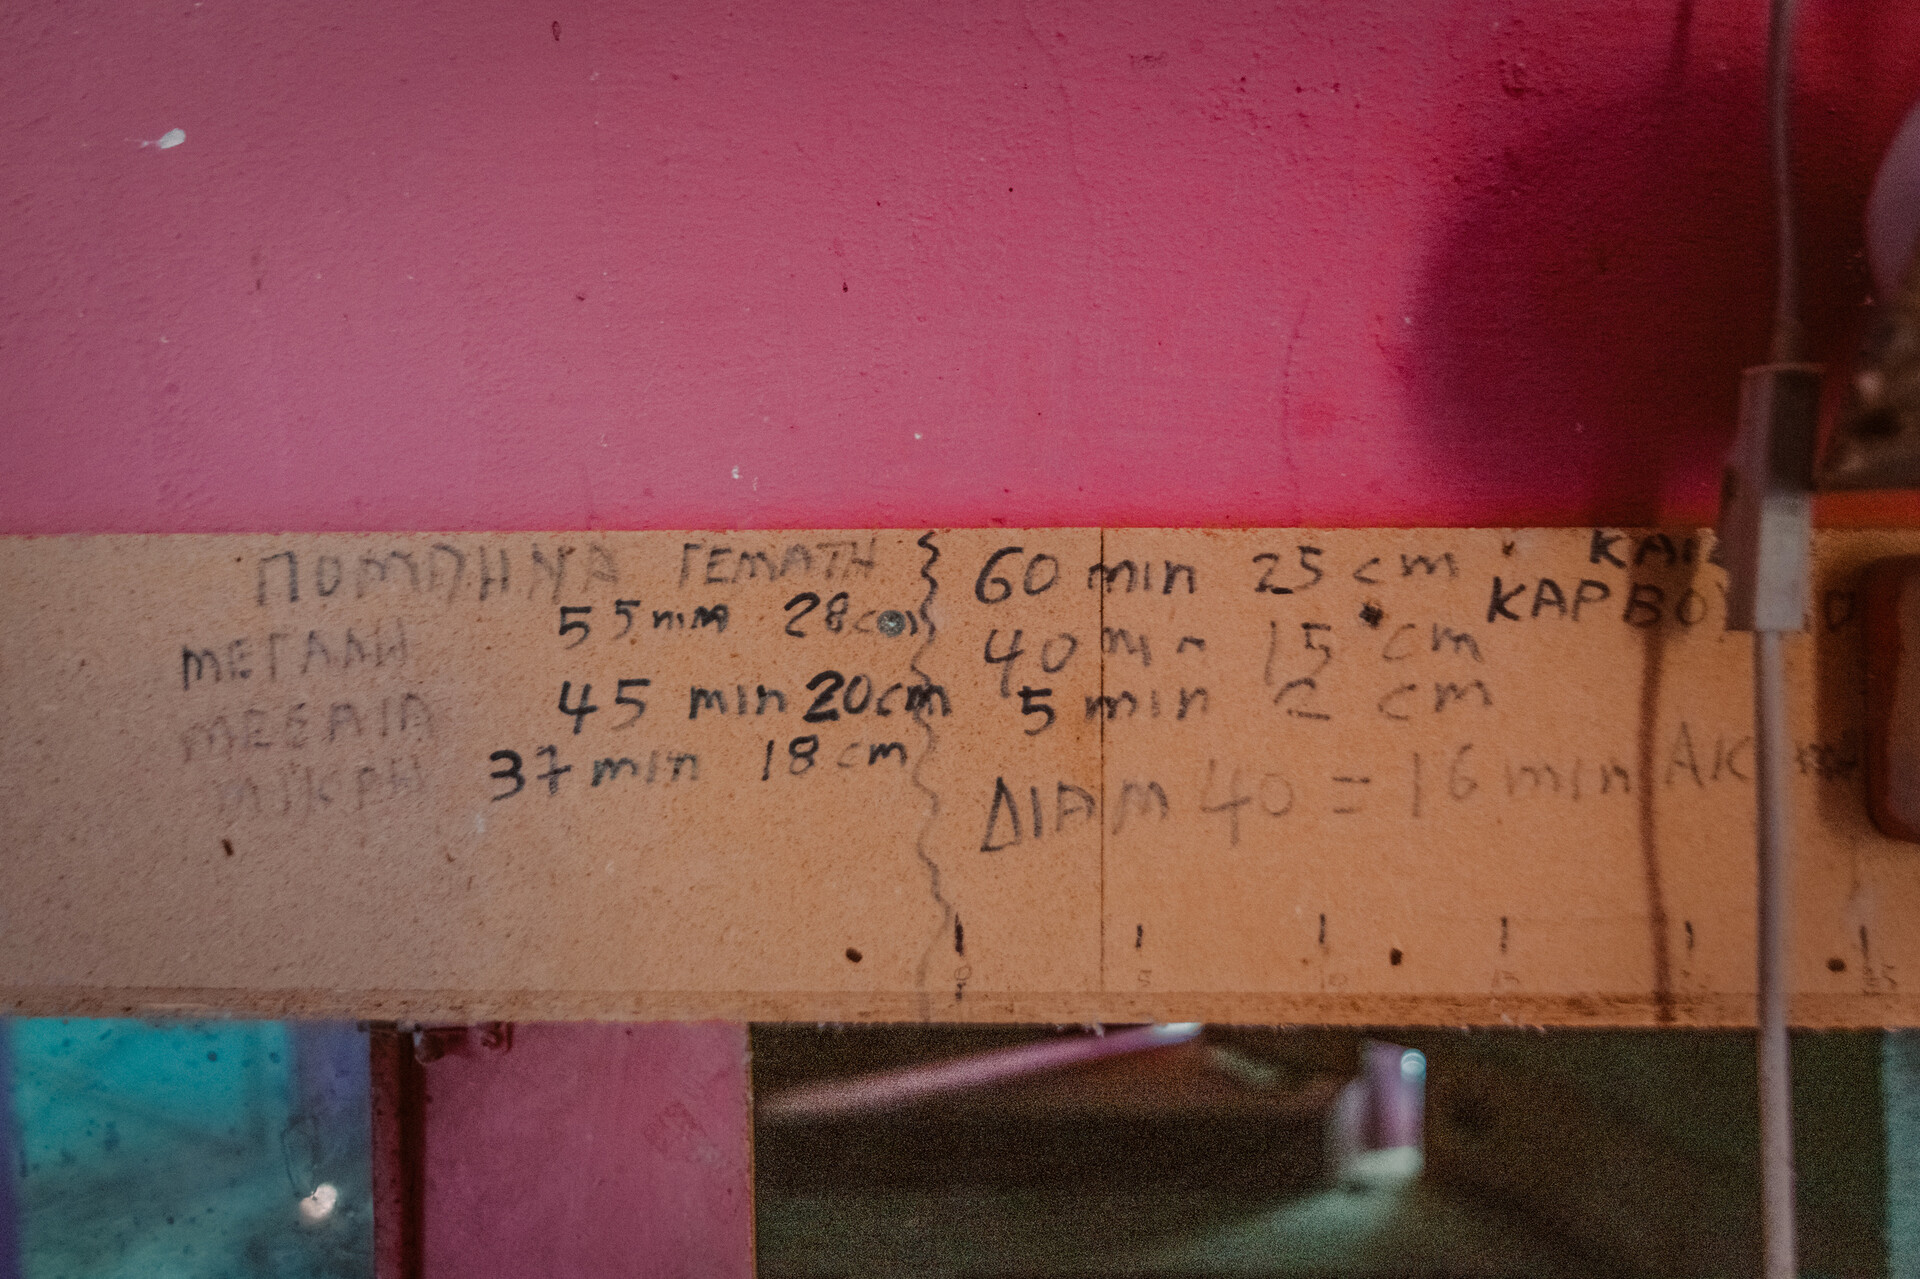 ΠΟΜΠΗΝΑ ΓΕΜΑΤΗ
ΜΕΓΑΛΗ 55 min 28 cm
ΜΕΣΑΙΑ 45 min 20 cm
ΜΙΚΡΗ 37 min 18 cm
60 min 25 cm
40 min 15 cm
5 min 2 cm
ΔΙΑΜ 40 = 16 min
0 5 10 15 25